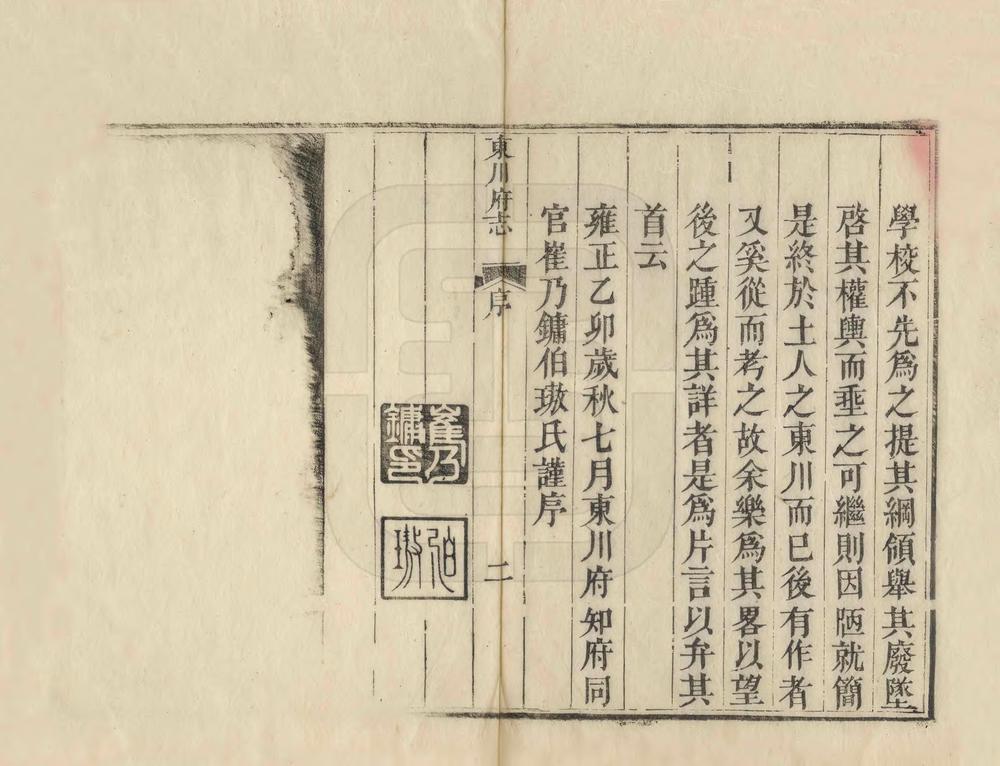 學校不先爲之提其綱領舉其廢墜
啓其權輿而垂之可繼則因陋就簡
是終於土人之東川而已後有作者
又奚從而考之故余樂爲其畧以望
後之踵爲其詳者是爲片言以弁其
首云
雍正乙卯歲秋七月東川府知府同
官崔乃鏞伯璈氏謹序
東川府志
序
二
崔乃
鏞印
伯
璈